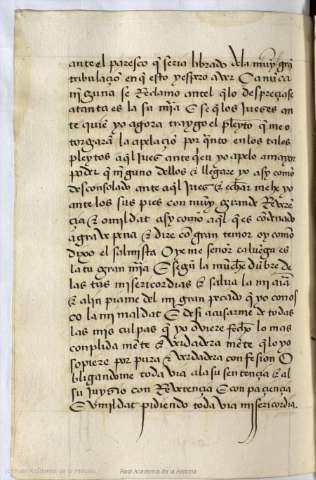 ante el paresco q̃ seria librado dela muy grã
tribulaçiõ en q̃ esto y espero aver Ca nũca
nĩguna se Reclamo antel q̃ lo despreçiase
atanta es la su mĩa E se q̃ los jueses an
te quiẽ yo agora traygo el pleyto q̃ me o
torgarã la apelaçiõ por q̃nto en los tales
pleytos aq̃l jues ante quẽ yo apelo a mayor
poder q̃ nĩguno dellos & llegare yo asy como
desconsolado ante aq̃l jues & echar mehe yo
ante los sus pies con muy grande Reverẽ
çia & omildat asy como aq̃l q̃ es cõdenado
a grave pena & dire cõ gran temor oy como
dixo el salmista Oye me señor ca luẽga es
la tu gran mĩa E segũ la muchẽ dũbre de
las tus misericordias & salva la mi aĩa
& alinpiame del mi gran pecado q̃ yo conos
co la mi maldat E desi acusarme de todas
las mis culpas q̃ yo oviere fecho lo mas
conplida mẽte & verdadera mẽte q̃ lo yo
sopiere por pura & verdadera confesiõ O
bligandome toda via ala su sentençia & al
su juyzio con Reverençia E con paçiençia
E vmildat pidiendo toda via misericordia
Real Academia de la Historia